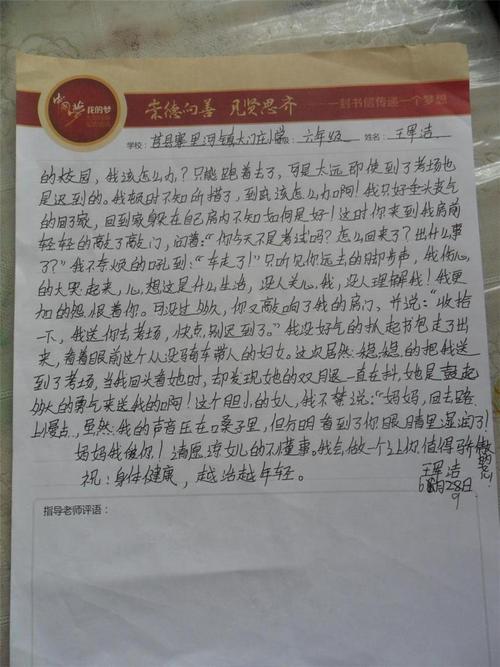 中国梦 我的梦
崇德向善 见贤思齐 一封书信传递一个梦想
学校：莒县寨里河镇大门庄小学 年级：六年级 姓名：王军洁
的校园，我该怎么办？只能跑着去了，可是太远，即使到了考场也
是迟到的。我顿时不知所措了，到底该怎么办啊！我只好垂头丧气
的回了家，回到家躲在自己房内不知如何是好！这时你来到我房前
轻轻的敲了敲门，问着：“你今天不是考试吗？怎么回来了？出什么事
了？”我不奈烦的吼到：“车走了！”只听见你远去的脚步声，我伤心
的大哭起来，心想这是什么生活，没人关心我，没人理解我！我更
加的怨恨着你。可没过多久，你又敲响了我的房门，并说：“收拾
一下，我送你去考场，快点，别迟到了。”我没好气的扒起书包走了出
来，看着眼前这个人没骑车带人的妇女。这次居然稳稳的把我送
到了考场，当我回头看她时，却发现她的双腿一直在抖，她是鼓起
多大的勇气来送我的啊！这个胆小的女人，我不禁说：“妈妈，回去路
上慢点，虽然我的声音压在口嗓子里，但分明看到了你眼睛里湿润了！
妈妈我爱你！请原谅女儿的不懂事。我会做一个让你值得骄傲的女儿！
祝：身体健康，越活越年轻。
王军洁
6月28日
9
指导老师评语：